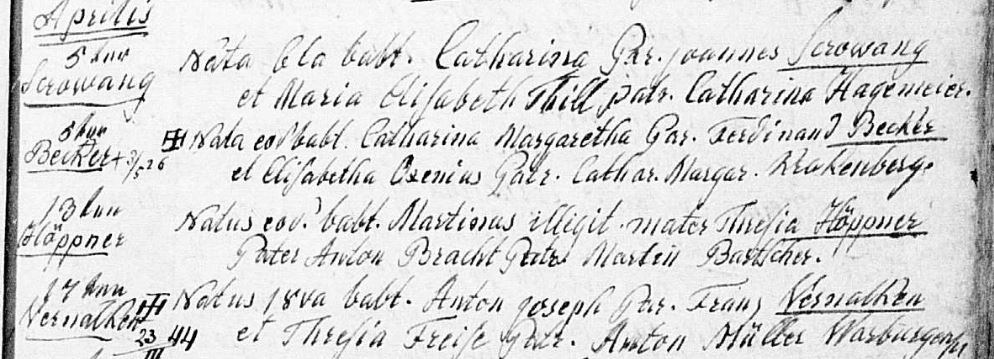 Aprilis
5 tun
Scrowang
Nata 6ta babt. Catharina Par. joannes Scrowang
et Maria Elisabeth Thill patr. Catharina Hagemeier.
5 tun
Becker + 3/5 26
Nata eod babt. Catharina Margaretha Par. Ferdinand Becker
et Elisabetha Patr. Cathar. Margar. Krakenberg.
13 tun
Höppner
Natus eod. babt. Martinus illegit. mater Thresia Höppner
Pater Anton Bracht Patr. Martin Bartscher.
17 tun
Vernalken
23 44
Natus 18va babt. Anton joseph Par. Franz Vernalken
et Thresia Freise Patr. Anton Müller Warburgensis